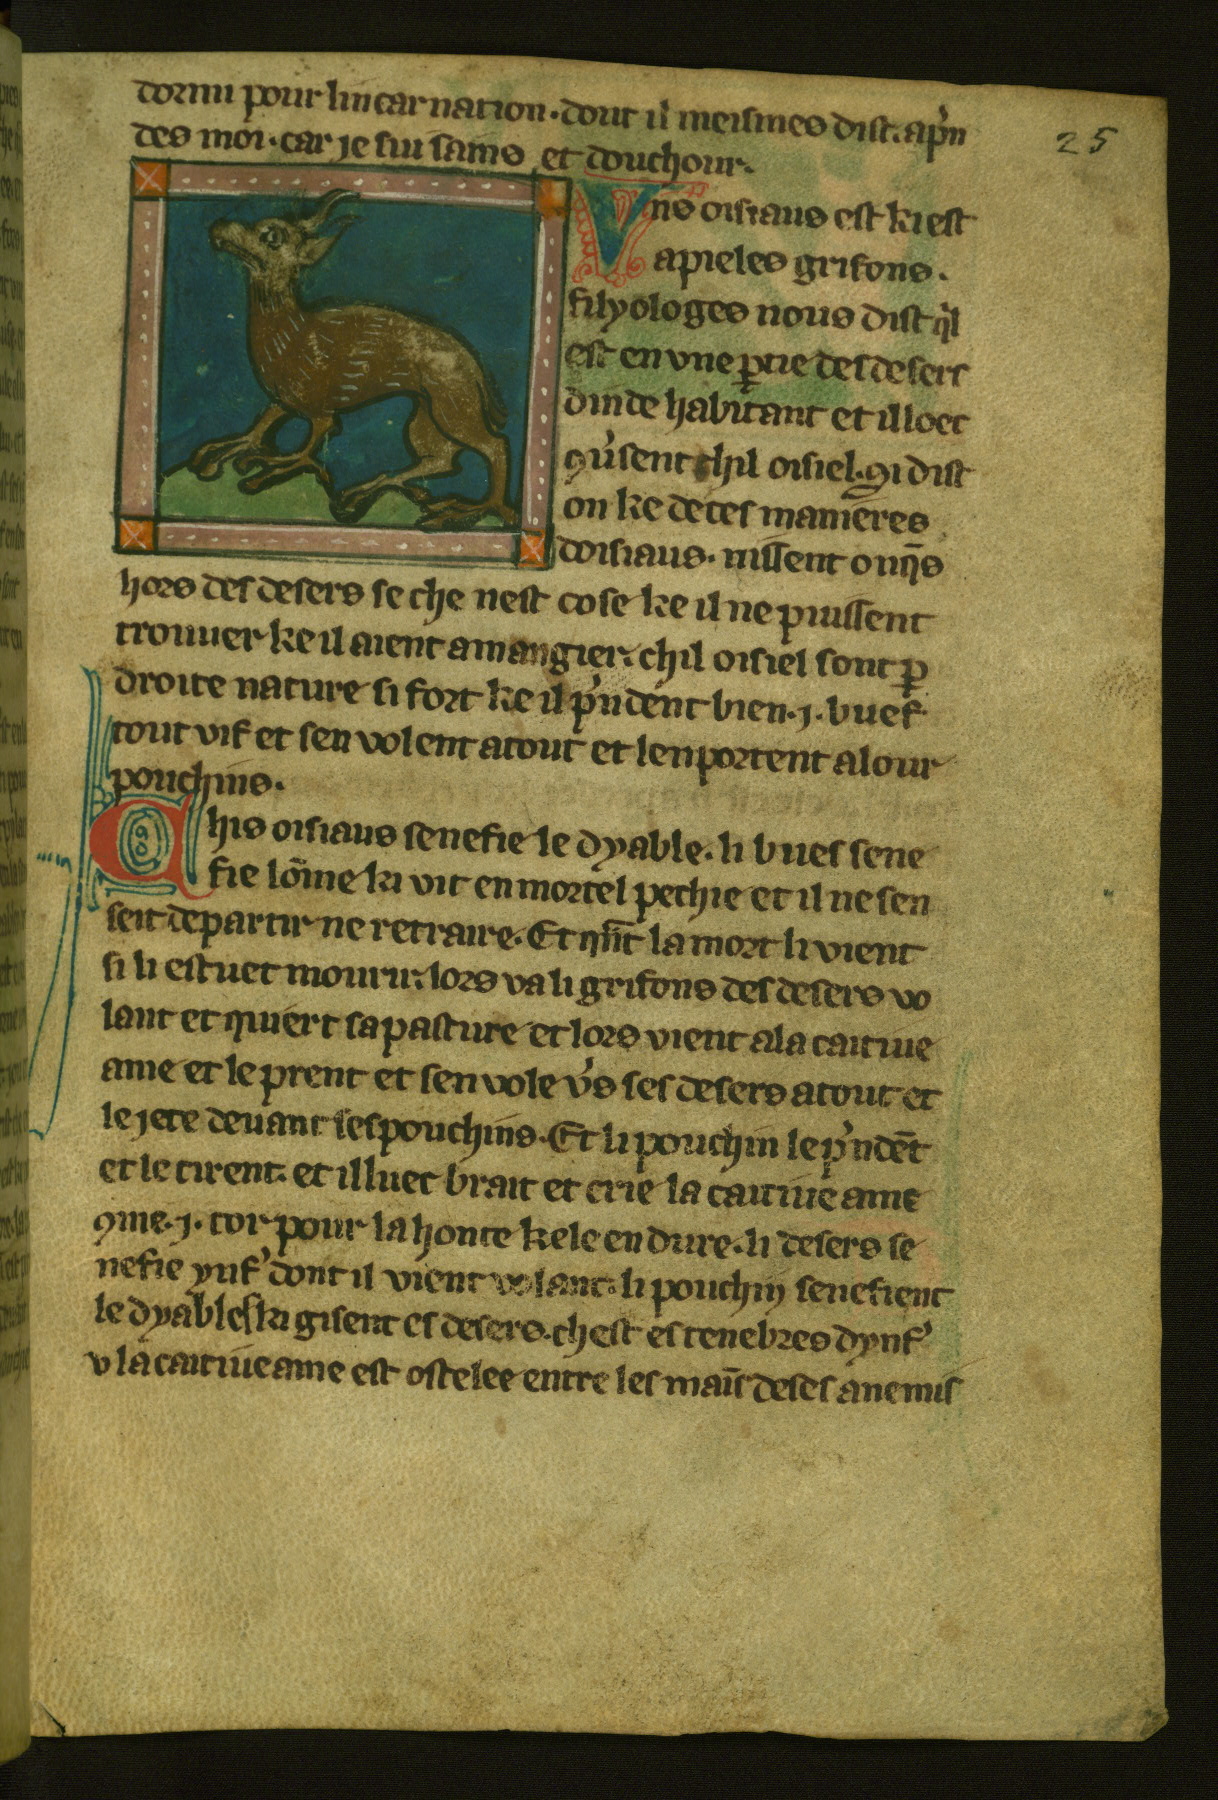 dormi pour lincarnation. dont il meismes dist. apͬn
des moi. car je sui sains et douchour.
25
Vns oisiaus est ki est
apieles grifons.
filyologes nous dist q̍l
est en vne ꝑtie des desers
dinde habitant et illoec
ꝯuͬsent chil oisiel. ꝯi dist
on ke de tes manieres
doisiaus. nissent onq̄s
hors des desers se che nest cose ke il ne puissent
trouuer ke il aient a mangier. chil oisiel sont ꝑ
droite nature si fort ke il pͬndent bien .j. buef
tout vif et sen volent atout et lenportent a lour
pouchins.
Chis oisiaus senefie le dyable. li bues sene
fie lōme ki vit en mortel pechie et il ne sen
seit departir ne retraire. Et qn̄t la mort li vient
si li estuet mourir. lors va li grifons des desers vo
lant et quiert sa pasture et lors vient a la caitiue
ame et le prent et sen vole vͬs ses desers atout et
le jete deuant ses pouchins. Et li pouchin le pͬndēt
et le tirent. et illuec brait et crie la caitiue ame
ꝯme .j. tor pour la honte kele endure. li desers se
nefie ynfͬ dont il vient volant. li pouchin senefient
le dyables ki gisent es desers. chest es tenebres dynfͬ
v la caitiue ame est ostelee entre les mais̄ de ses anemis